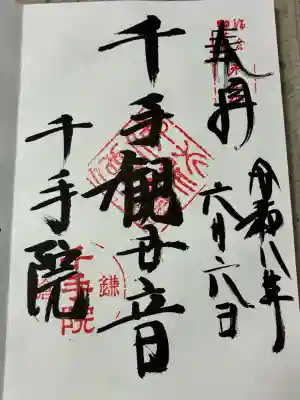 奉拝
令和八年
六月六日
千手観世音
千手院
鎌倉
千手院